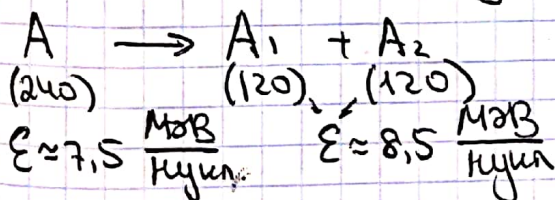 A → A₁ + A₂
(240) (120) (120)
ε≈7,5 МэВ/нукл. ε≈8,5 МэВ/нукл